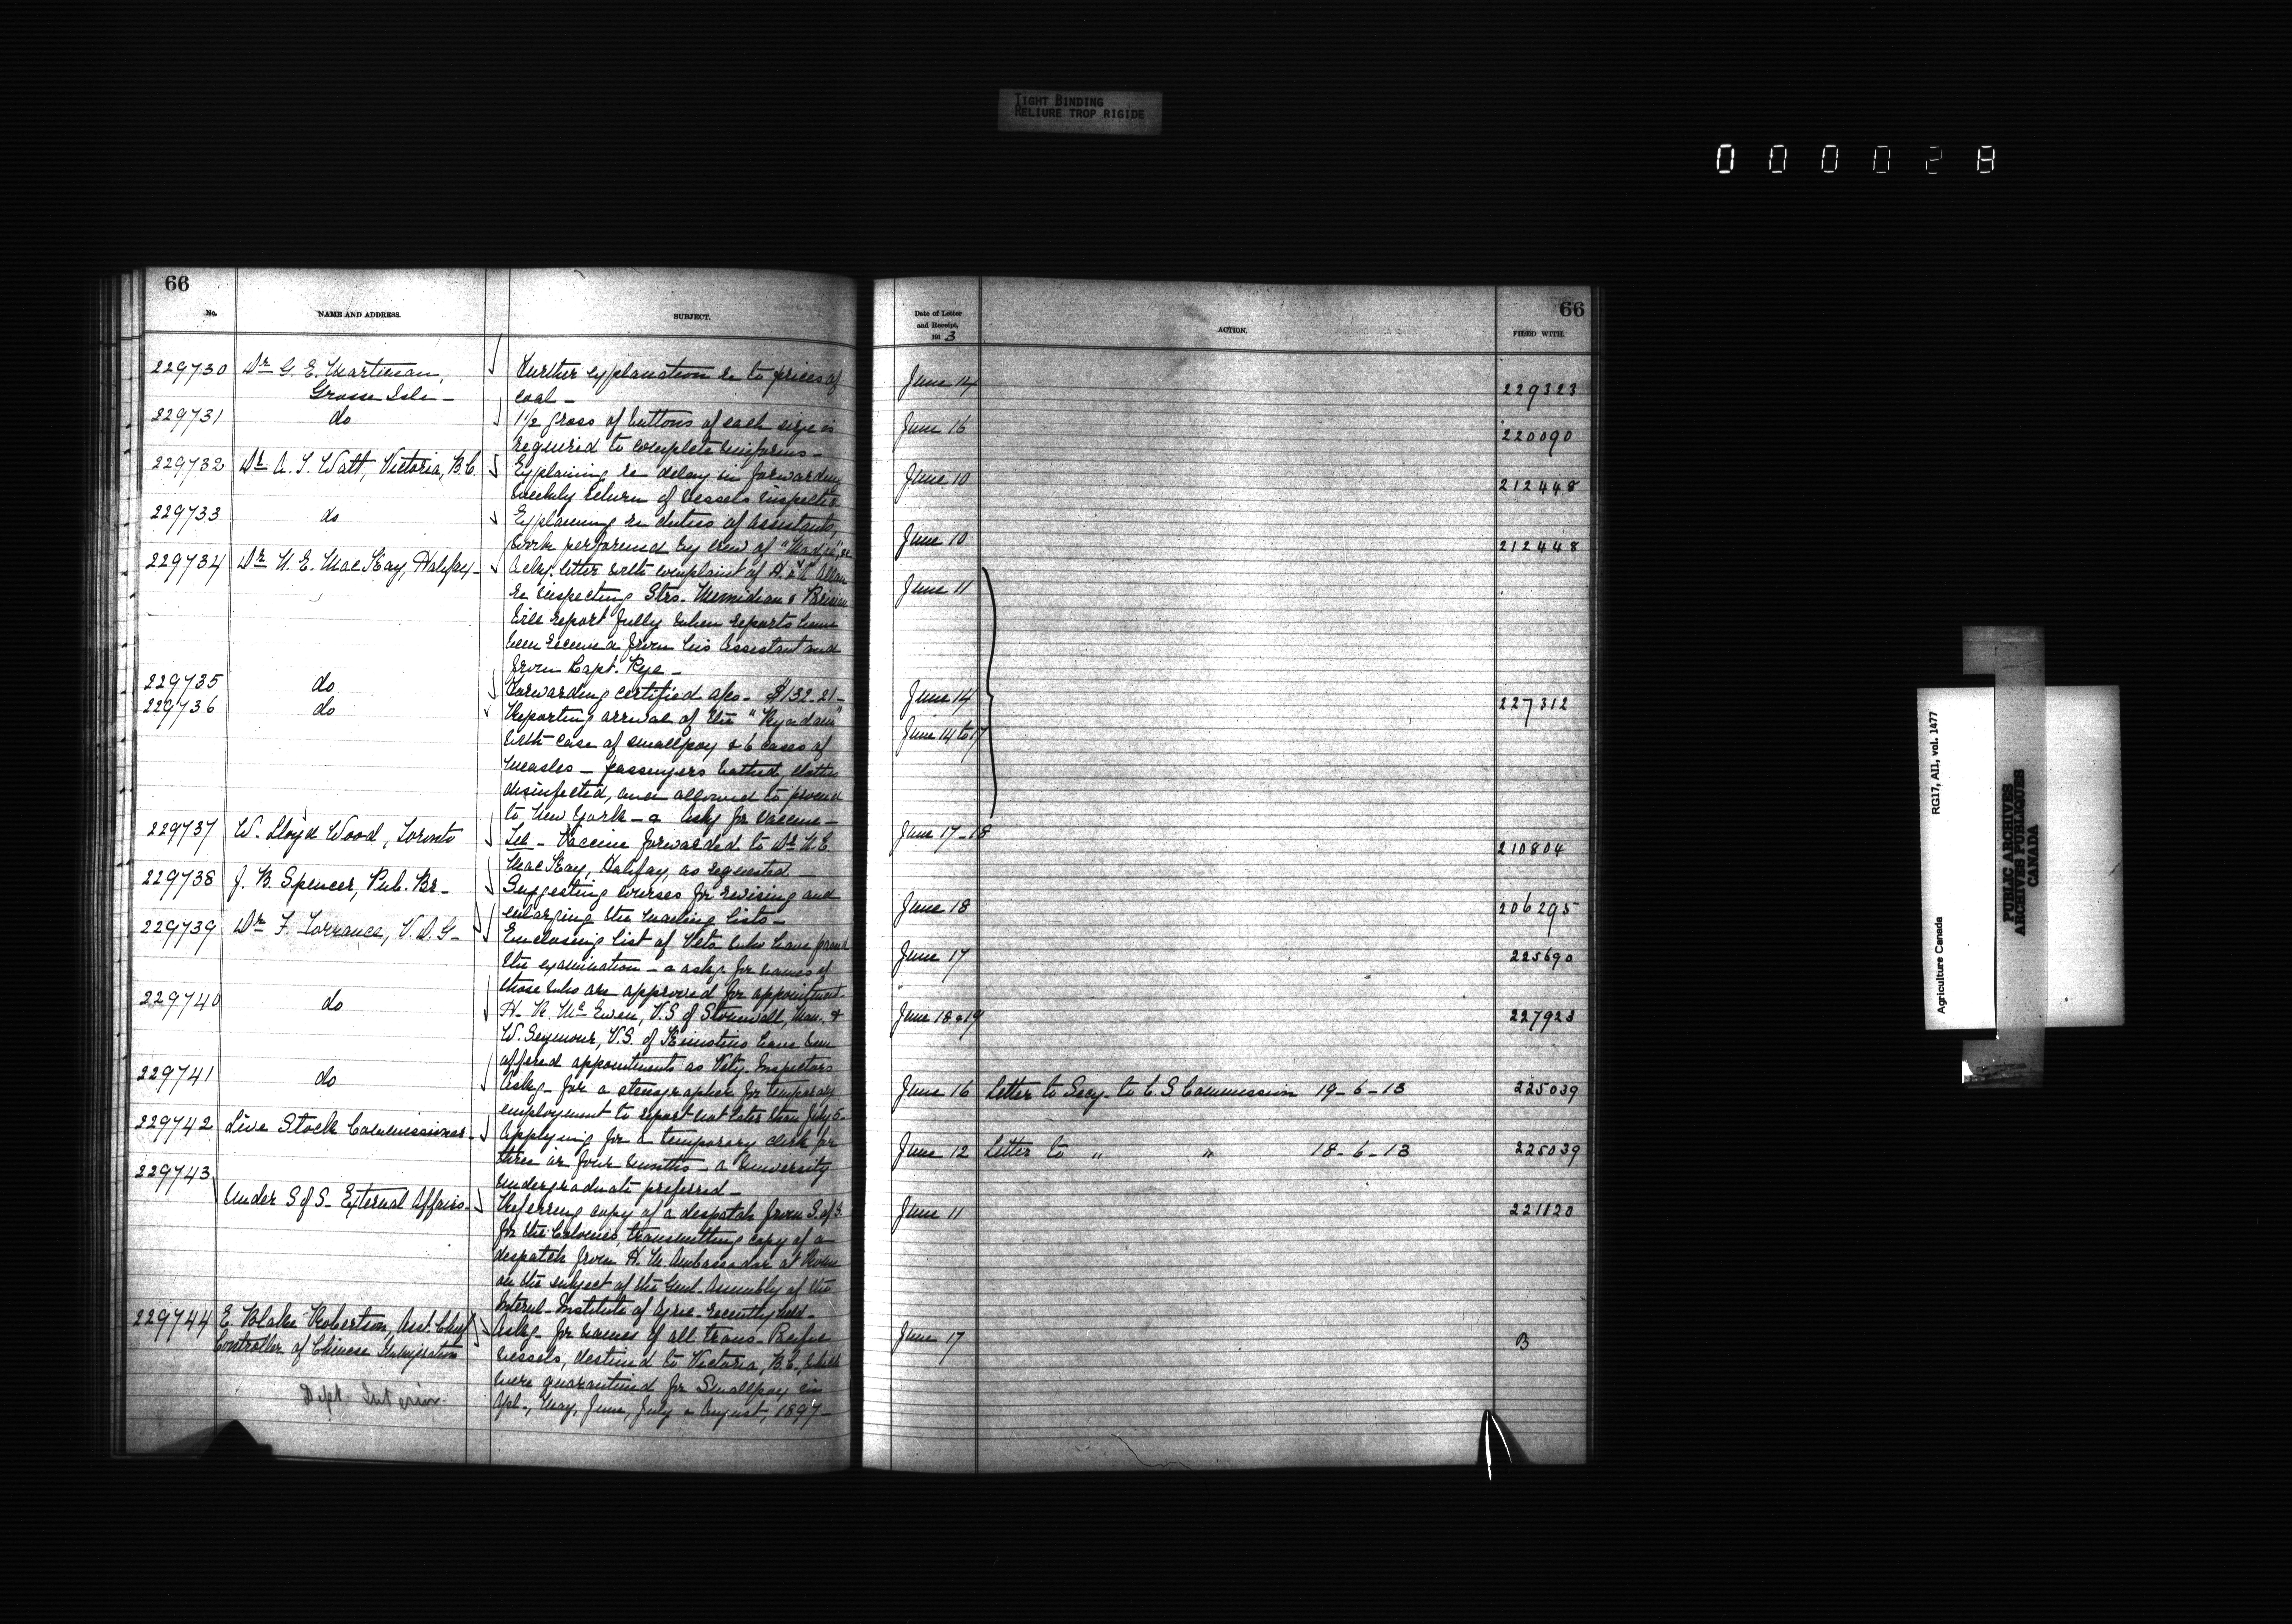 TIGHT BINDING
RELIURE TROP RIGIDE
000028
66
No.
NAME AND ADDRESS.
SUBJECT.
229730 Dr G. E. Martineau,
Grosse Isle -
Further explanation re to prices of
coal -
229731 do
1½ gross of buttons of each size is
required to complete uniforms -
229732 Dr A. T. Watt, Victoria, B.C.
Explaining re delay in forwarding
weekly return of vessels inspected
229733 do
Explaining re duties of assistants,
work performed by crew of "Madge",
229734 Dr N. E. MacKay, Halifax -
Ackg. letter with complaint of H. & A. Allan
re inspecting Strs. Numidian & Parisian
Will report fully when reports have
been received from his Assistant and
from Capt. Rye -
229735 do
Forwarding certified a/cs - $132.21 -
229736 do
Reporting arrival of the "Ryndam"
with case of smallpox & 6 cases of
measles - passengers bathed, clothes
disinfected, and allowed to proceed
to New York - & Askg for vaccine -
229737 W. Lloyd Wood, Toronto
Tel - Vaccine forwarded to Dr N. E.
MacKay, Halifax, as requested
229738 J. B. Spencer, Pub. Br -
Suggesting courses for revising and
enlarging the mailing lists -
229739 Dr F. Torrance, V. D. G -
Enclosing list of Vets who have passed
the examination - & askg for names of
those who are approved for appointment
229740 do
H. R. McEwen, V.S. of Stonewall, Man. &
W. Seymour, V.S. of Kinistino have been
offered appointments as Vety. Inspectors
229741 do
Askg - for a stenographer for temporary
employment to report not later than July 5 -
229742 Live Stock Commissioner -
Applying for a temporary clerk for
three or four months - a University
undergraduate preferred -
229743
Under S of S - External Affairs -
Referring copy of a despatch from S. of S.
for the Colonies, transmitting copy of a
despatch from H. M. Ambassador at Rome
on the subject of the Genl. Assembly of the
Internl - Institute of Agric - recently held -
229744 E. Blake Robertson, Asst. Chief
Controller of Chinese Immigration
Dept. Interior
Askg - for names of all trans-Pacific
vessels, destined to Victoria, B.C., which
were quarantined for Smallpox in
Apl., May, June, July & August, 1897 -
66
Date of Letter
and Receipt,
1913
ACTION.
FILED WITH.
June 14 229323
June 16 220090
June 10 212448
June 10 212448
June 11
June 14 227312
June 14 to 17
June 17 - 18 210804
June 18 206295
June 17 225690
June 18 & 19 227923
June 16 Letter to Secy - to C. S. Commission 19 - 6 - 13 225039
June 12 Letter to " " 18 - 6 - 13 225039
June 11 221120
June 17 B
Agriculture Canada RG17, AII, vol. 1477
PUBLIC ARCHIVES
ARCHIVES PUBLIQUES
CANADA